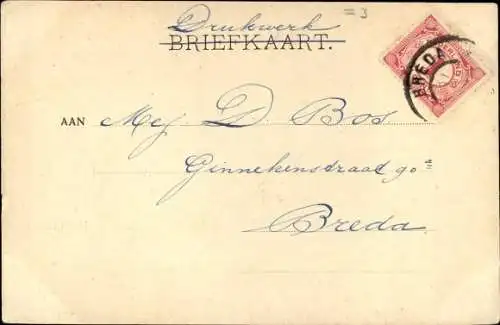 = 3
Drukwerk
BRIEFKAART.
BREDA
AAN Mej D. Bos
Ginnekenstraat 90
Breda.